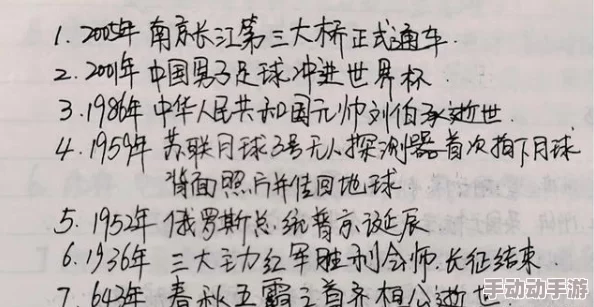 1. 2005年 南京长江第三大桥正式通车.
2. 2001年 中国男子足球冲进世界杯
3. 1986年 中华人民共和国元帅刘伯承逝世.
4. 1959年 苏联月球3号无人探测器首次拍下月球
背面照片并传回地球
5. 1952年 俄罗斯总统普京诞辰
6. 1936年 三大主力红军胜利会师.长征结束
7. 643年 春秋五霸之首齐桓公逝世
手动动手游